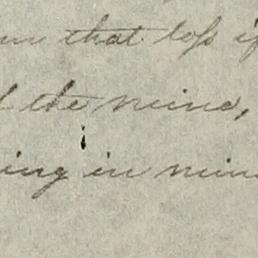 that loss if
the mind,
ing in min